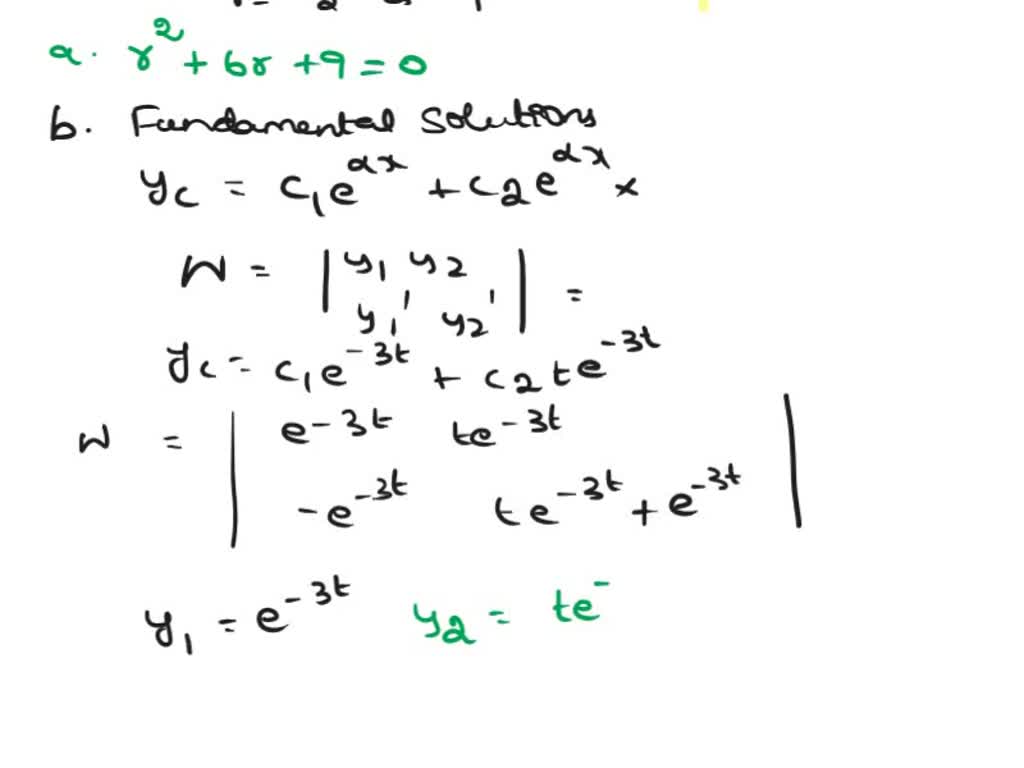 a. r² + 6r + 9 = 0
b. Fundamental Solutions
yc = c₁e^αx + c₂e^αx x
W = | y₁ y₂ | =
y₁' y₂'
yc = c₁e^-3t + c₂te^-3t
W = | e^-3t te^-3t |
-e^-3t te^-3t + e^-3t
y₁ = e^-3t y₂ = te^-